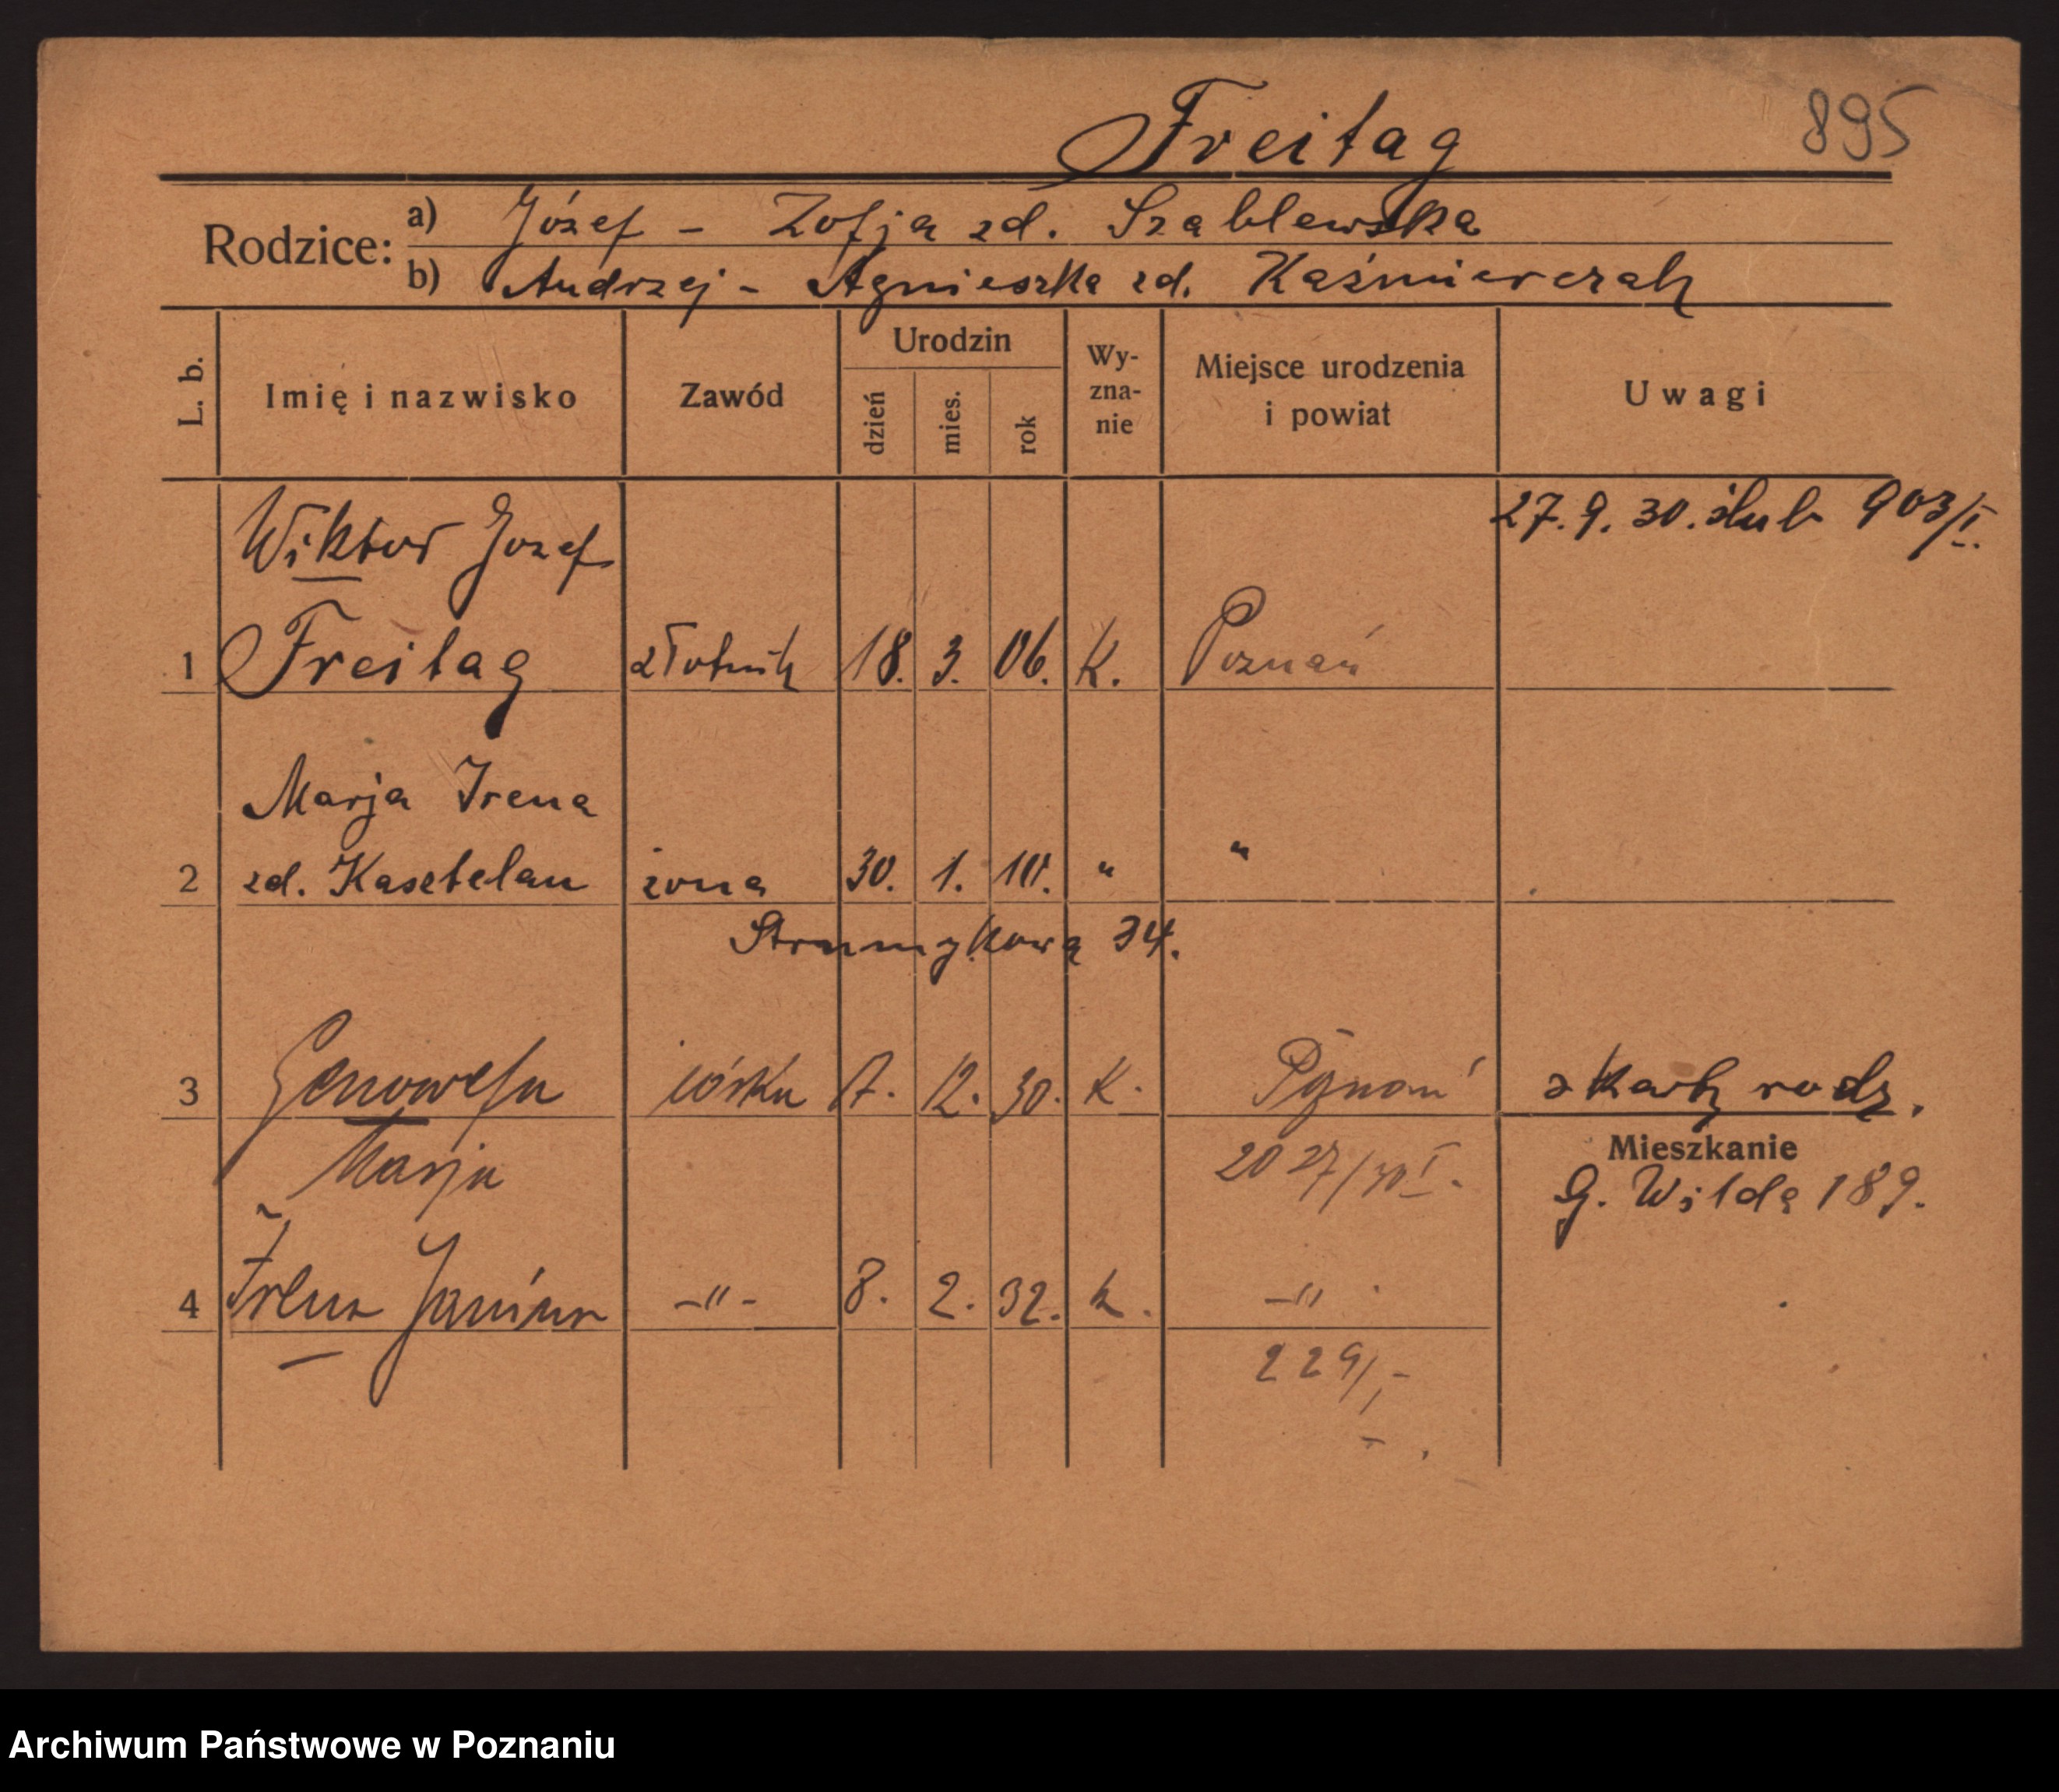 Freitag 895
Rodzice: a) Józef – Zofja zd. Szablewska
b) Andrzej – Agnieszka zd. Kaźmierczak
L. b. Imię i nazwisko Zawód Urodzin dzień mies. rok Wy-zna-nie Miejsce urodzenia i powiat Uwagi
27. 9. 30. ślub 903/I.
Wiktor Jozef
1 Freitag złotnik 18. 3. 06. K. Poznań
Marja Irena
2 zd. Kasztelan żona 30. 1. 10. " "
Strumykowa 34.
3 Genowefa córka 17. 12. 30. K. Poznań z karty rodz.
Mieszkanie
Marja 2027/30 I. G. Wilda 189.
4 Irena Janina –"– 8. 2. 32. k. –"–
229/
Archiwum Państwowe w Poznaniu